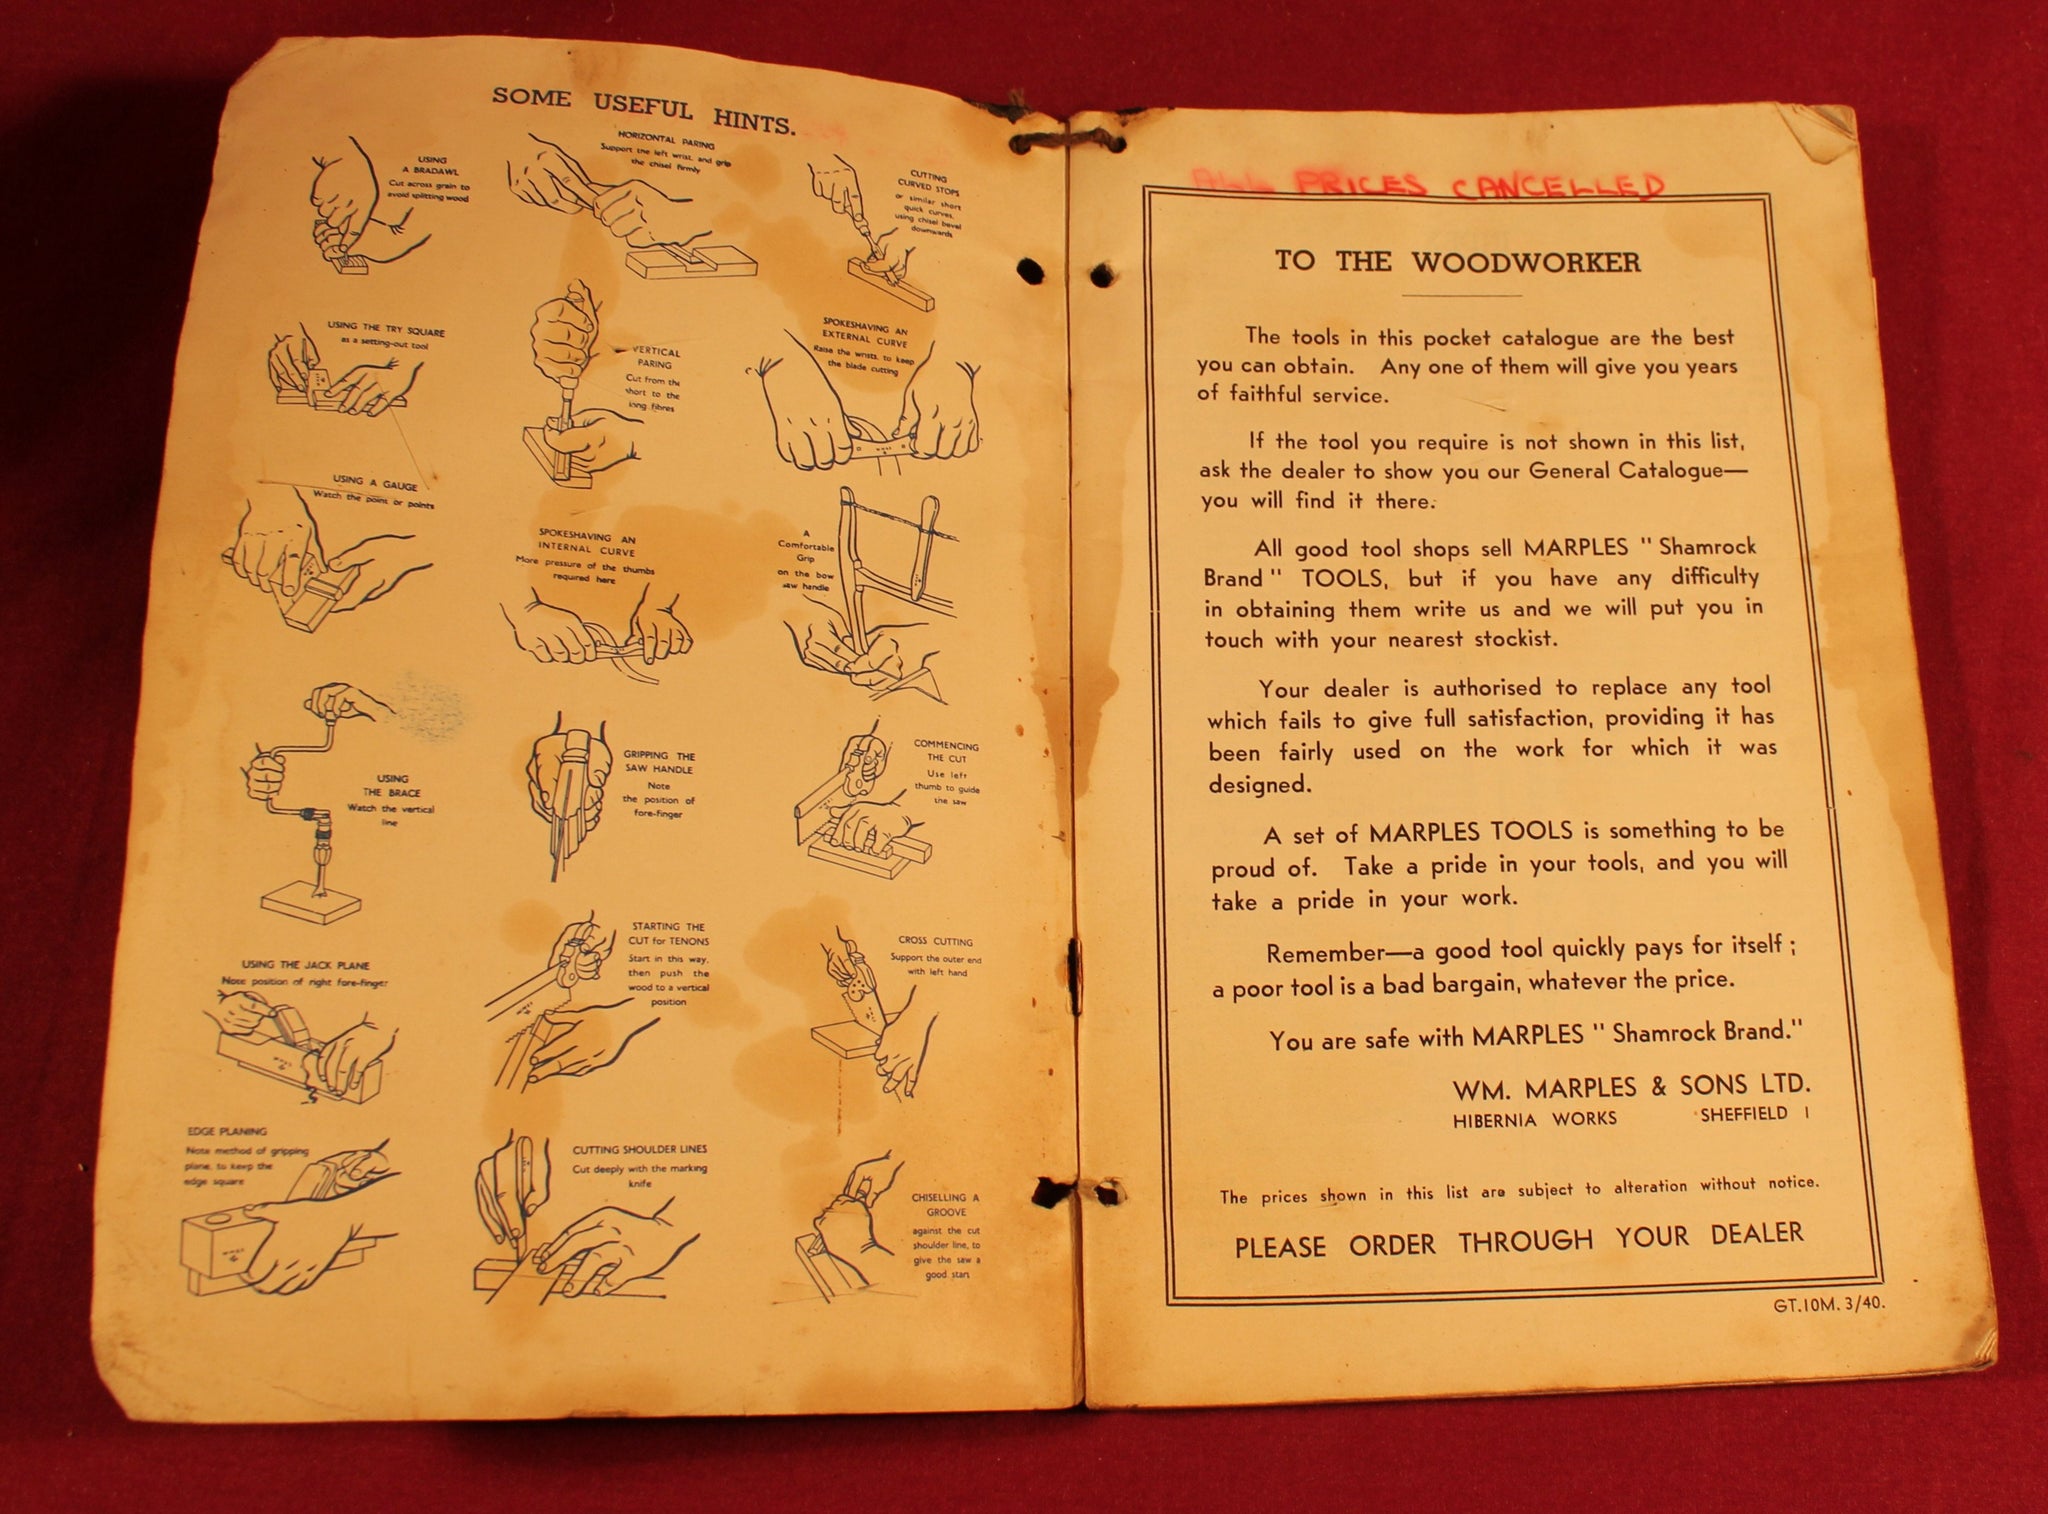 SOME USEFUL HINTS.
USING
A BRADAWL
Cut across grain to
avoid splitting wood
HORIZONTAL PARING
Support the left wrist, and grip
the chisel firmly
CUTTING
CURVED STOPS
or similar short
quick curves,
using chisel bevel
downwards
USING THE TRY SQUARE
as a setting-out tool
VERTICAL
PARING
Cut from the
short to the
long fibres
SPOKESHAVING AN
EXTERNAL CURVE
Raise the wrists, to keep
the blade cutting
USING A GAUGE
Watch the point or points
SPOKESHAVING AN
INTERNAL CURVE
More pressure of the thumbs
required here
A
Comfortable
Grip
on the bow
saw handle
USING
THE BRACE
Watch the vertical
line
GRIPPING THE
SAW HANDLE
Note
the position of
fore-finger
COMMENCING
THE CUT
Use left
thumb to guide
the saw
USING THE JACK PLANE
Note position of right fore-finger
STARTING THE
CUT for TENONS
Start in this way,
then push the
wood to a vertical
position
CROSS CUTTING
Support the outer end
with left hand
EDGE PLANING
Note method of gripping
plane, to keep the
edge square
CUTTING SHOULDER LINES
Cut deeply with the marking
knife
CHISELLING A
GROOVE
against the cut
shoulder line, to
give the saw a
good start
ALL PRICES CANCELLED
TO THE WOODWORKER
The tools in this pocket catalogue are the best
you can obtain. Any one of them will give you years
of faithful service.
If the tool you require is not shown in this list,
ask the dealer to show you our General Catalogue—
you will find it there.
All good tool shops sell MARPLES "Shamrock
Brand" TOOLS, but if you have any difficulty
in obtaining them write us and we will put you in
touch with your nearest stockist.
Your dealer is authorised to replace any tool
which fails to give full satisfaction, providing it has
been fairly used on the work for which it was
designed.
A set of MARPLES TOOLS is something to be
proud of. Take a pride in your tools, and you will
take a pride in your work.
Remember—a good tool quickly pays for itself;
a poor tool is a bad bargain, whatever the price.
You are safe with MARPLES "Shamrock Brand."
WM. MARPLES & SONS LTD.
HIBERNIA WORKS SHEFFIELD 1
The prices shown in this list are subject to alteration without notice.
PLEASE ORDER THROUGH YOUR DEALER
GT.10M. 3/40.